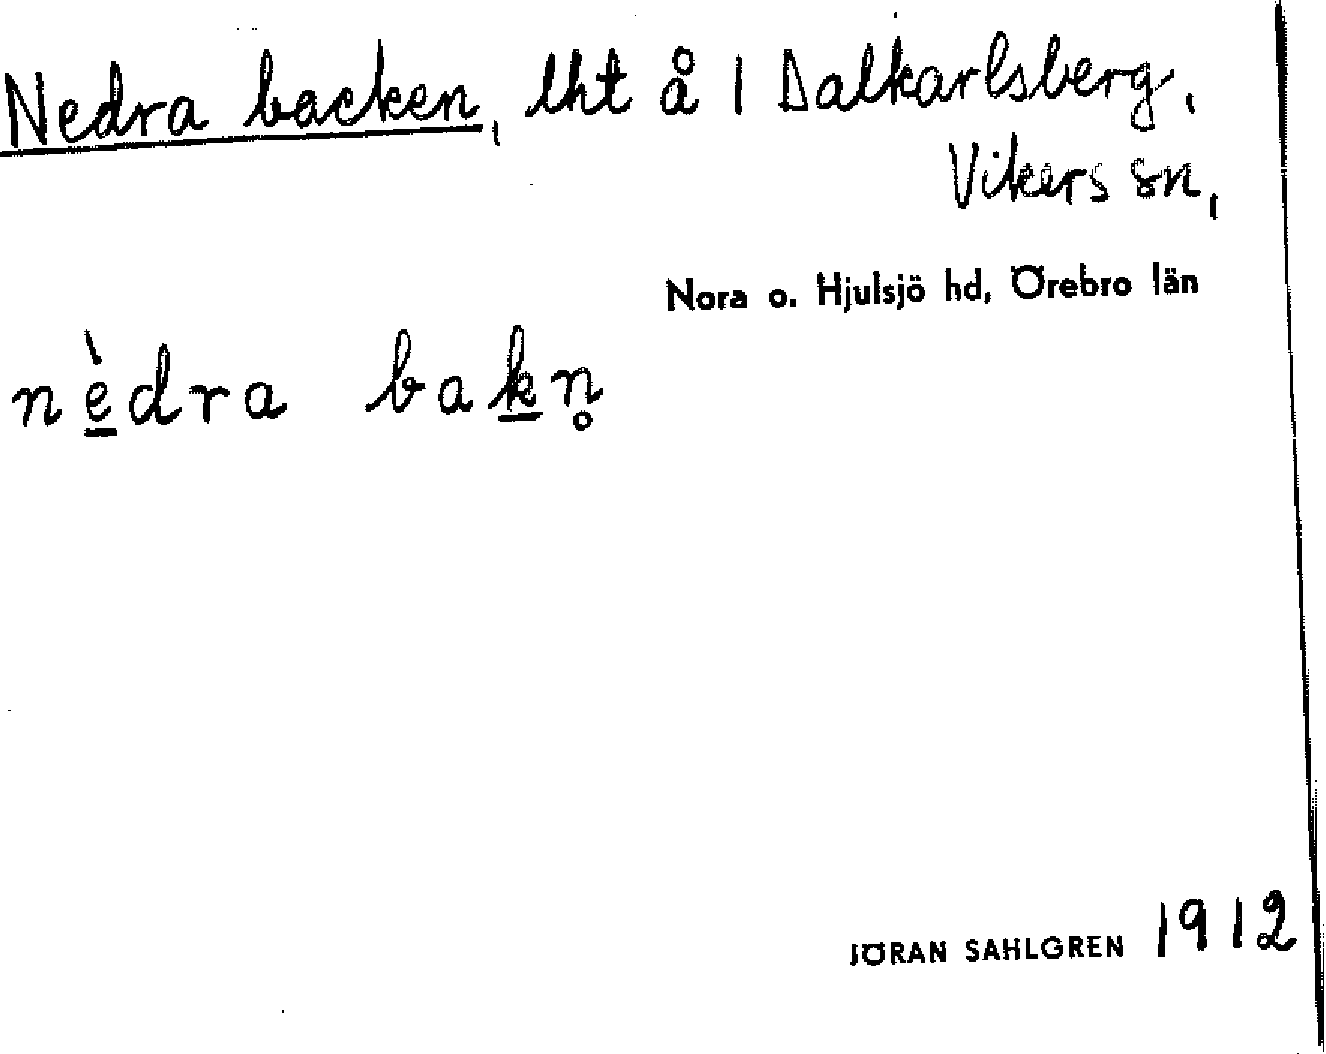 Nedra backen, lht å 1 Dalkarlsberg,
Vikers sn,
Nora o. Hjulsjö hd, Örebro län
nè̱dra baḵn̥
JÖRAN SAHLGREN 1912